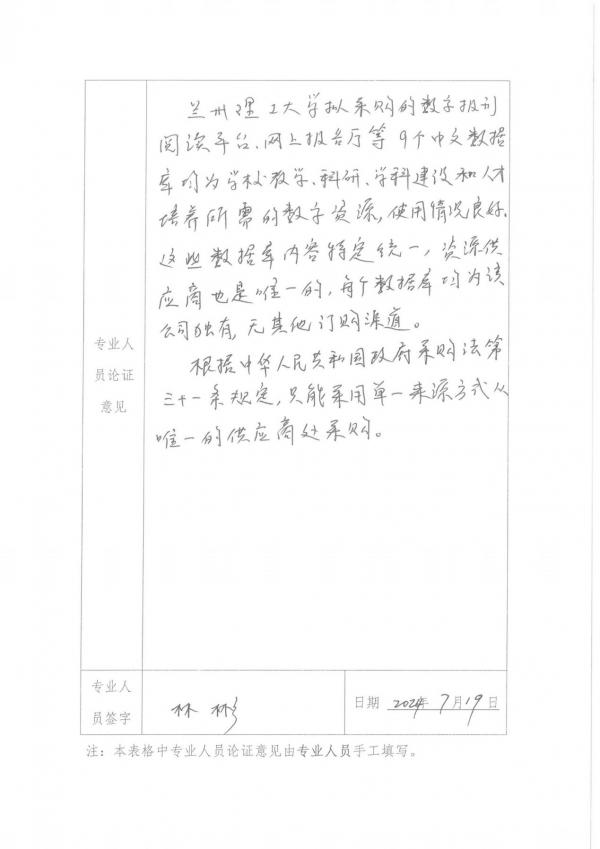 兰州理工大学拟采购的数字报刊
阅读平台、网上报告厅等9个中文数据
库均为学校教学、科研、学科建设和人才
培养所需的数字资源,使用情况良好。
这些数据库内容特定统一,资源供
应商也是唯一的,每个数据库均为该
公司独有,无其他订购渠道。
根据中华人民共和国政府采购法第
三十一条规定,只能采用单一来源方式从
唯一的供应商处采购。
专业人
员论证
意见
专业人
员签字
林彬
日期 2024年7月19日
注:本表格中专业人员论证意见由专业人员手工填写。